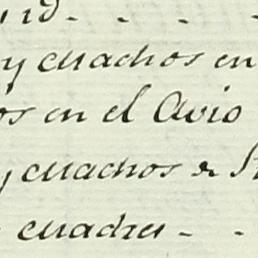 id. - - -
y cuachos en
os en el Avio
y cuachos de
cuadres - -